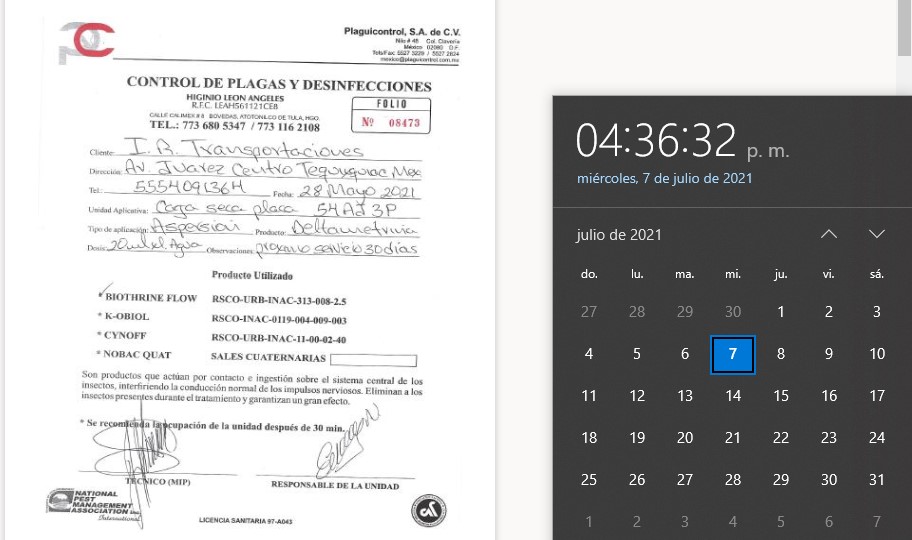 Plaguicontrol, S.A. de C.V.
Nilo # 45 Col. Clavería
México 02080 D.F.
Tels/Fax: 5527 3229 / 5527 2824
mexico@plaguicontrol.com.mx
CONTROL DE PLAGAS Y DESINFECCIONES
HIGINIO LEON ANGELES
R.F.C. LEAH561121CE8
CALLE CALIMEX # 8 BOVEDAS, ATOTONILCO DE TULA, HGO.
TEL.: 773 680 5347 / 773 116 2108
FOLIO
Nº 08473
Cliente: I.R. Transportaciones
Dirección: Av. Juarez Centro Tequixquiac Mex
Tel.: 5554091364 Fecha: 28 Mayo 2021
Unidad Aplicativa: Caja seca placa 54AJ3P
Tipo de aplicación: Aspersión Producto: Deltametrina
Dosis: Agua Observaciones: proximo servicio 30 días
Producto Utilizado
* BIOTHRINE FLOW RSCO-URB-INAC-313-008-2.5
* K-OBIOL RSCO-INAC-0119-004-009-003
* CYNOFF RSCO-URB-INAC-11-00-02-40
* NOBAC QUAT SALES CUATERNARIAS
Son productos que actúan por contacto e ingestión sobre el sistema central de los
insectos, interfiriendo la conducción normal de los impulsos nerviosos. Eliminan a los
insectos presentes durante el tratamiento y garantizan un gran efecto.
* Se recomienda la ocupación de la unidad después de 30 min.
TECNICO (MIP)
RESPONSABLE DE LA UNIDAD
NATIONAL
PEST
MANAGEMENT
ASSOCIATION Inc.
International
LICENCIA SANITARIA 97-A043
04:36:32 p. m.
miércoles, 7 de julio de 2021
julio de 2021
do. lu. ma. mi. ju. vi. sá.
27 28 29 30 1 2 3
4 5 6 7 8 9 10
11 12 13 14 15 16 17
18 19 20 21 22 23 24
25 26 27 28 29 30 31
1 2 3 4 5 6 7